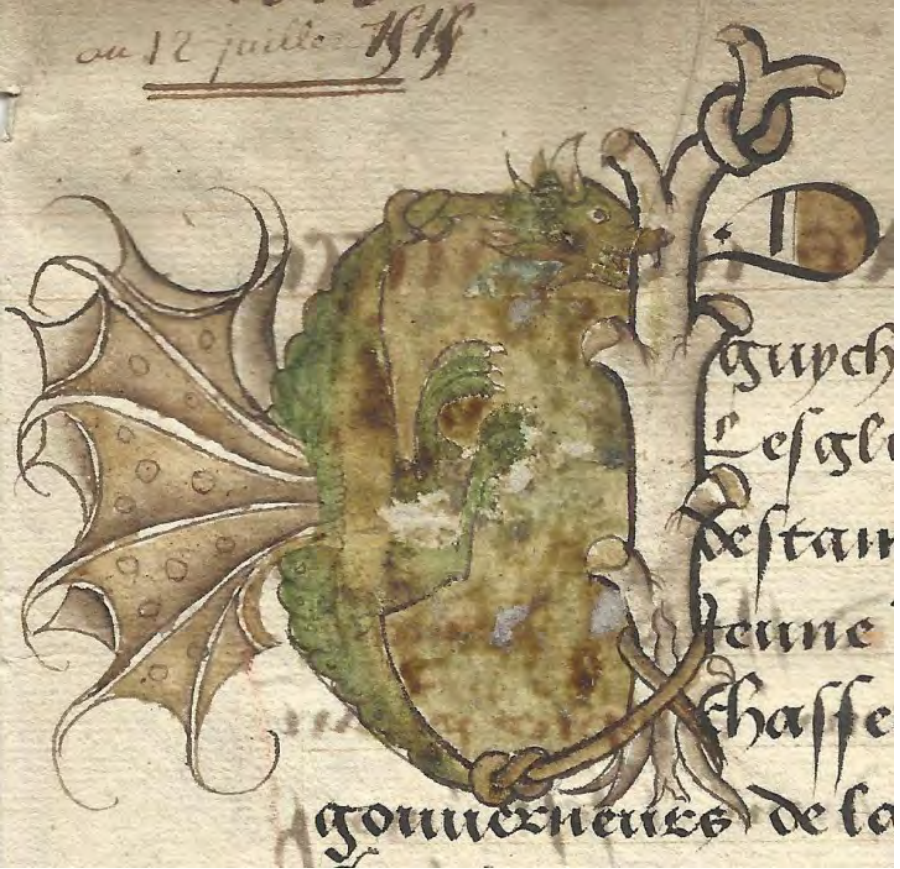 au 12 juillet 1515
D
guych
Lesgl
destam
tenne
chasse
gouuerneurs de la